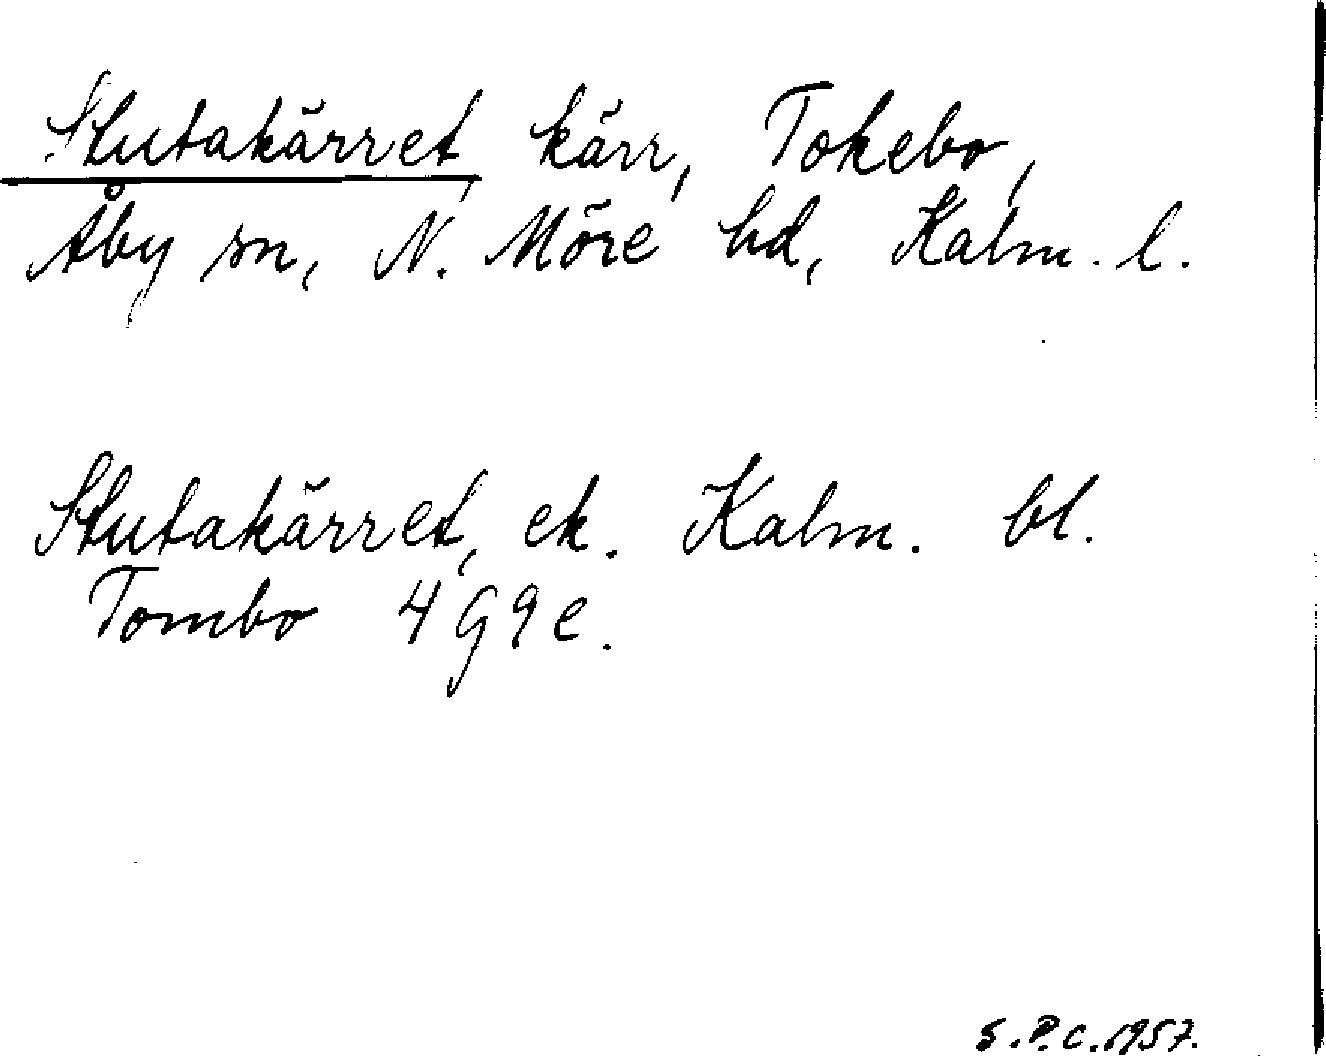 Stutakärret, kärr, Tokebo,
Åby sn, N. Möre hd, Kalm. l.
Stutakärret, ek. Kalm. bl.
Tombo 4G9e.
S.P.C. 1957.